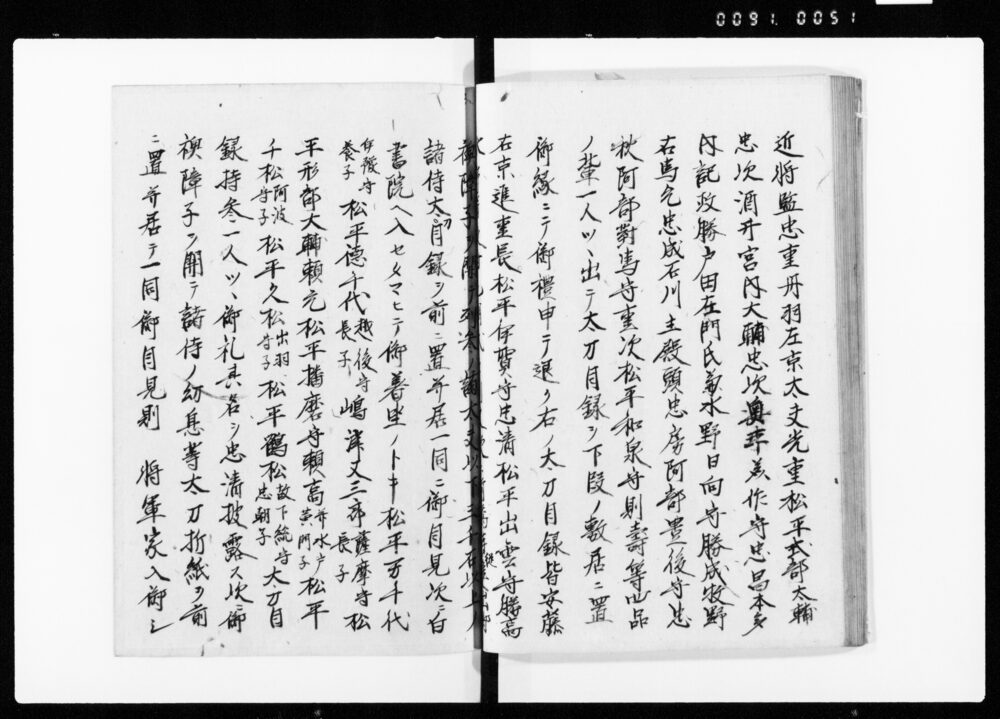 0091.0051
近将監忠重丹羽左京太夫光重松平式部太輔
忠次酒井宮内大輔忠次奥平美作守忠昌本多
内記政勝戸田左門氏鉄水野日向守勝成牧野
右馬允忠成石川主殿頭忠房阿部豊後守忠
秋阿部對馬守重次松平和泉守則壽等四品
ノ輩一人ツヽ出テ太刀目録ヲ下段ノ敷居ニ置
御縁ニテ御禮申テ退ク右ノ太刀目録皆安藤
右京進重長松平伊賀守忠清松平出雲守勝高
諸侍太刀目録ヲ前ニ置并居一同ニ御目見次ニ白
書院ヘ入セタマヒテ御着坐ノトキ松平万千代
伊豫守養子松平徳千代越後守長子嶋津又三郎薩摩守長子松
平形部大輔頼元松平播磨守頼高并水戸黄門子松平
千松阿波守子松平久松出羽守子松平鶴松故下総守忠朝子太刀目
録持参一人ツヽ御礼其名ヲ忠清披露ス次ニ御
襖障子ヲ開テ諸侍ノ幼息等太刀折紙ヲ前
ニ置并居テ一同御目見則 将軍家入御シ